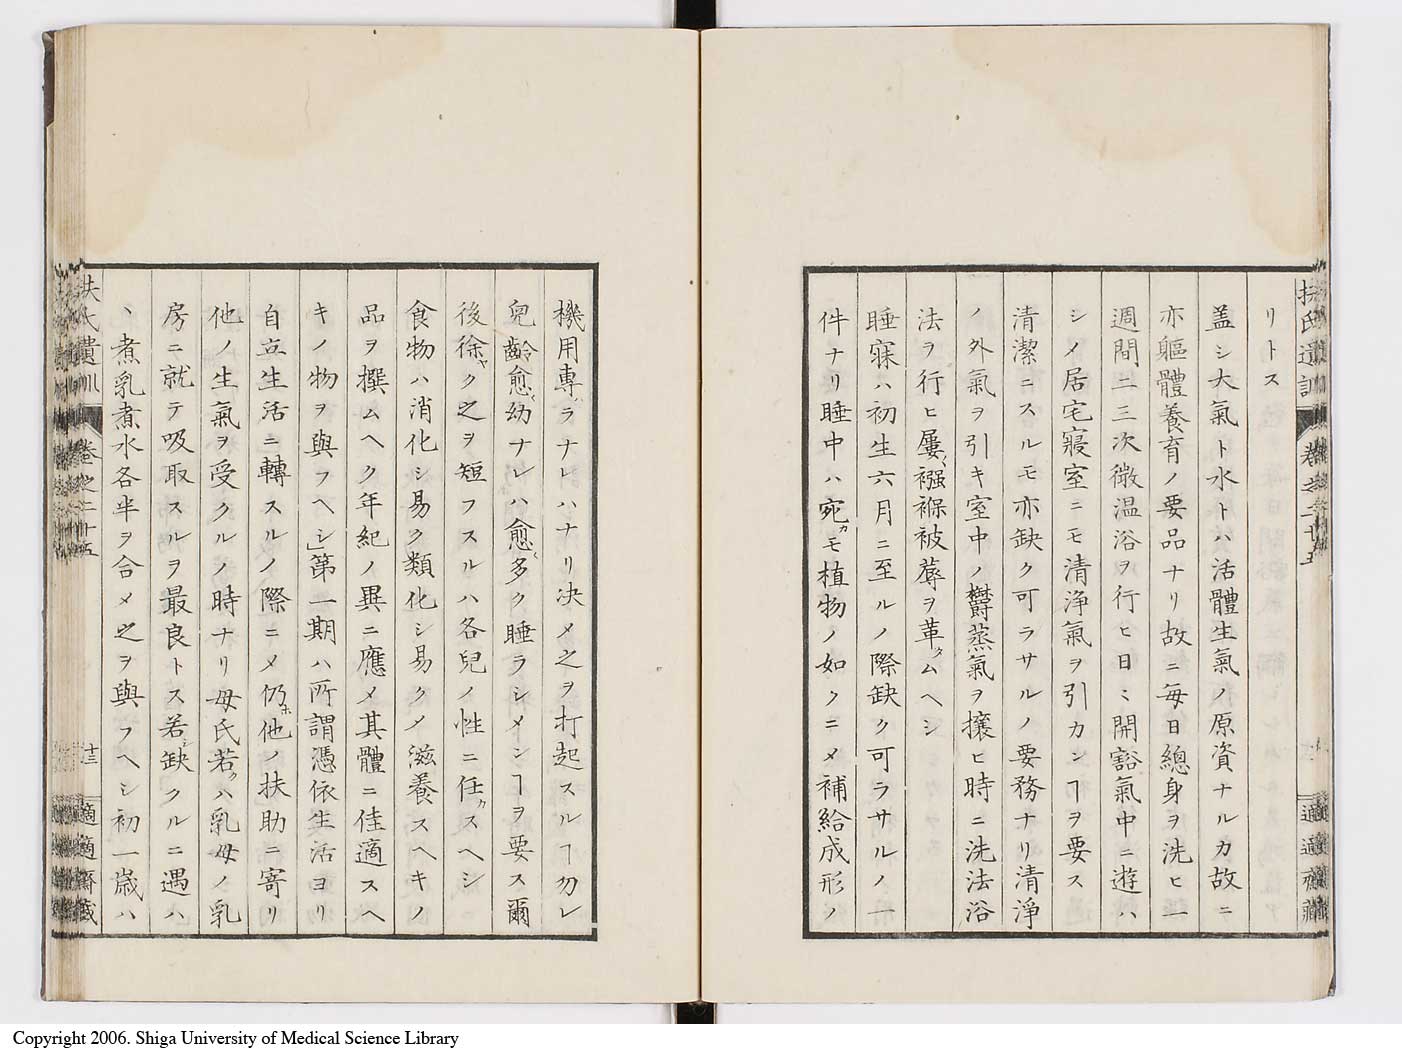 リトス
蓋シ大氣ト水トハ活體生氣ノ原資ナルカ故ニ
亦軀體養育ノ要品ナリ故ニ毎日總身ヲ洗ヒ一
週間二三次微温浴ヲ行ヒ日ミ開豁氣中ニ遊ハ
シメ居宅寢室ニモ清淨氣ヲ引カンヿヲ要ス
清潔ニスルモ亦缺ク可ラサルノ要務ナリ清淨
ノ外氣ヲ引キ室中ノ欝蒸氣ヲ攘ヒ時ニ洗法浴
法ヲ行ヒ屢〻襁褓被蓐ヲ革ムヘシ
睡寐ハ初生六月ニ至ルノ際缺ク可ラサルノ一
件ナリ睡中ハ宛カモ植物ノ如クニメ補給成形ノ
扶氏遺訓
卷之二十五
適適齋藏
機用専ラナレハナリ决メ之ヲ打起スルヿ勿レ
兒齡愈幼ナレハ愈多ク睡ラシメンヿヲ要ス爾
後徐ヤク之ヲ短フスルハ各兒ノ性ニ任カスヘシ
食物ハ消化シ易ク類化シ易クメ滋養スヘキノ
品ヲ撰ムヘク年紀ノ異ニ應メ其體ニ佳適スヘ
キノ物ヲ與フヘシ」第一期ハ所謂憑依生活ヨリ
自立生活ニ轉スルノ際ニメ仍ホ他ノ扶助ニ寄リ
他ノ生氣ヲ受クルノ時ナリ母氏若クハ乳母ノ乳
房ニ就テ吸取スルヲ最良トス若シ缺クルニ遇ハ
ヽ煮乳煮水各半ヲ合メ之ヲ與フヘシ初一歳ハ
扶氏遺訓
卷之二十五
十三
適適齋藏
Copyright 2006. Shiga University of Medical Science Library